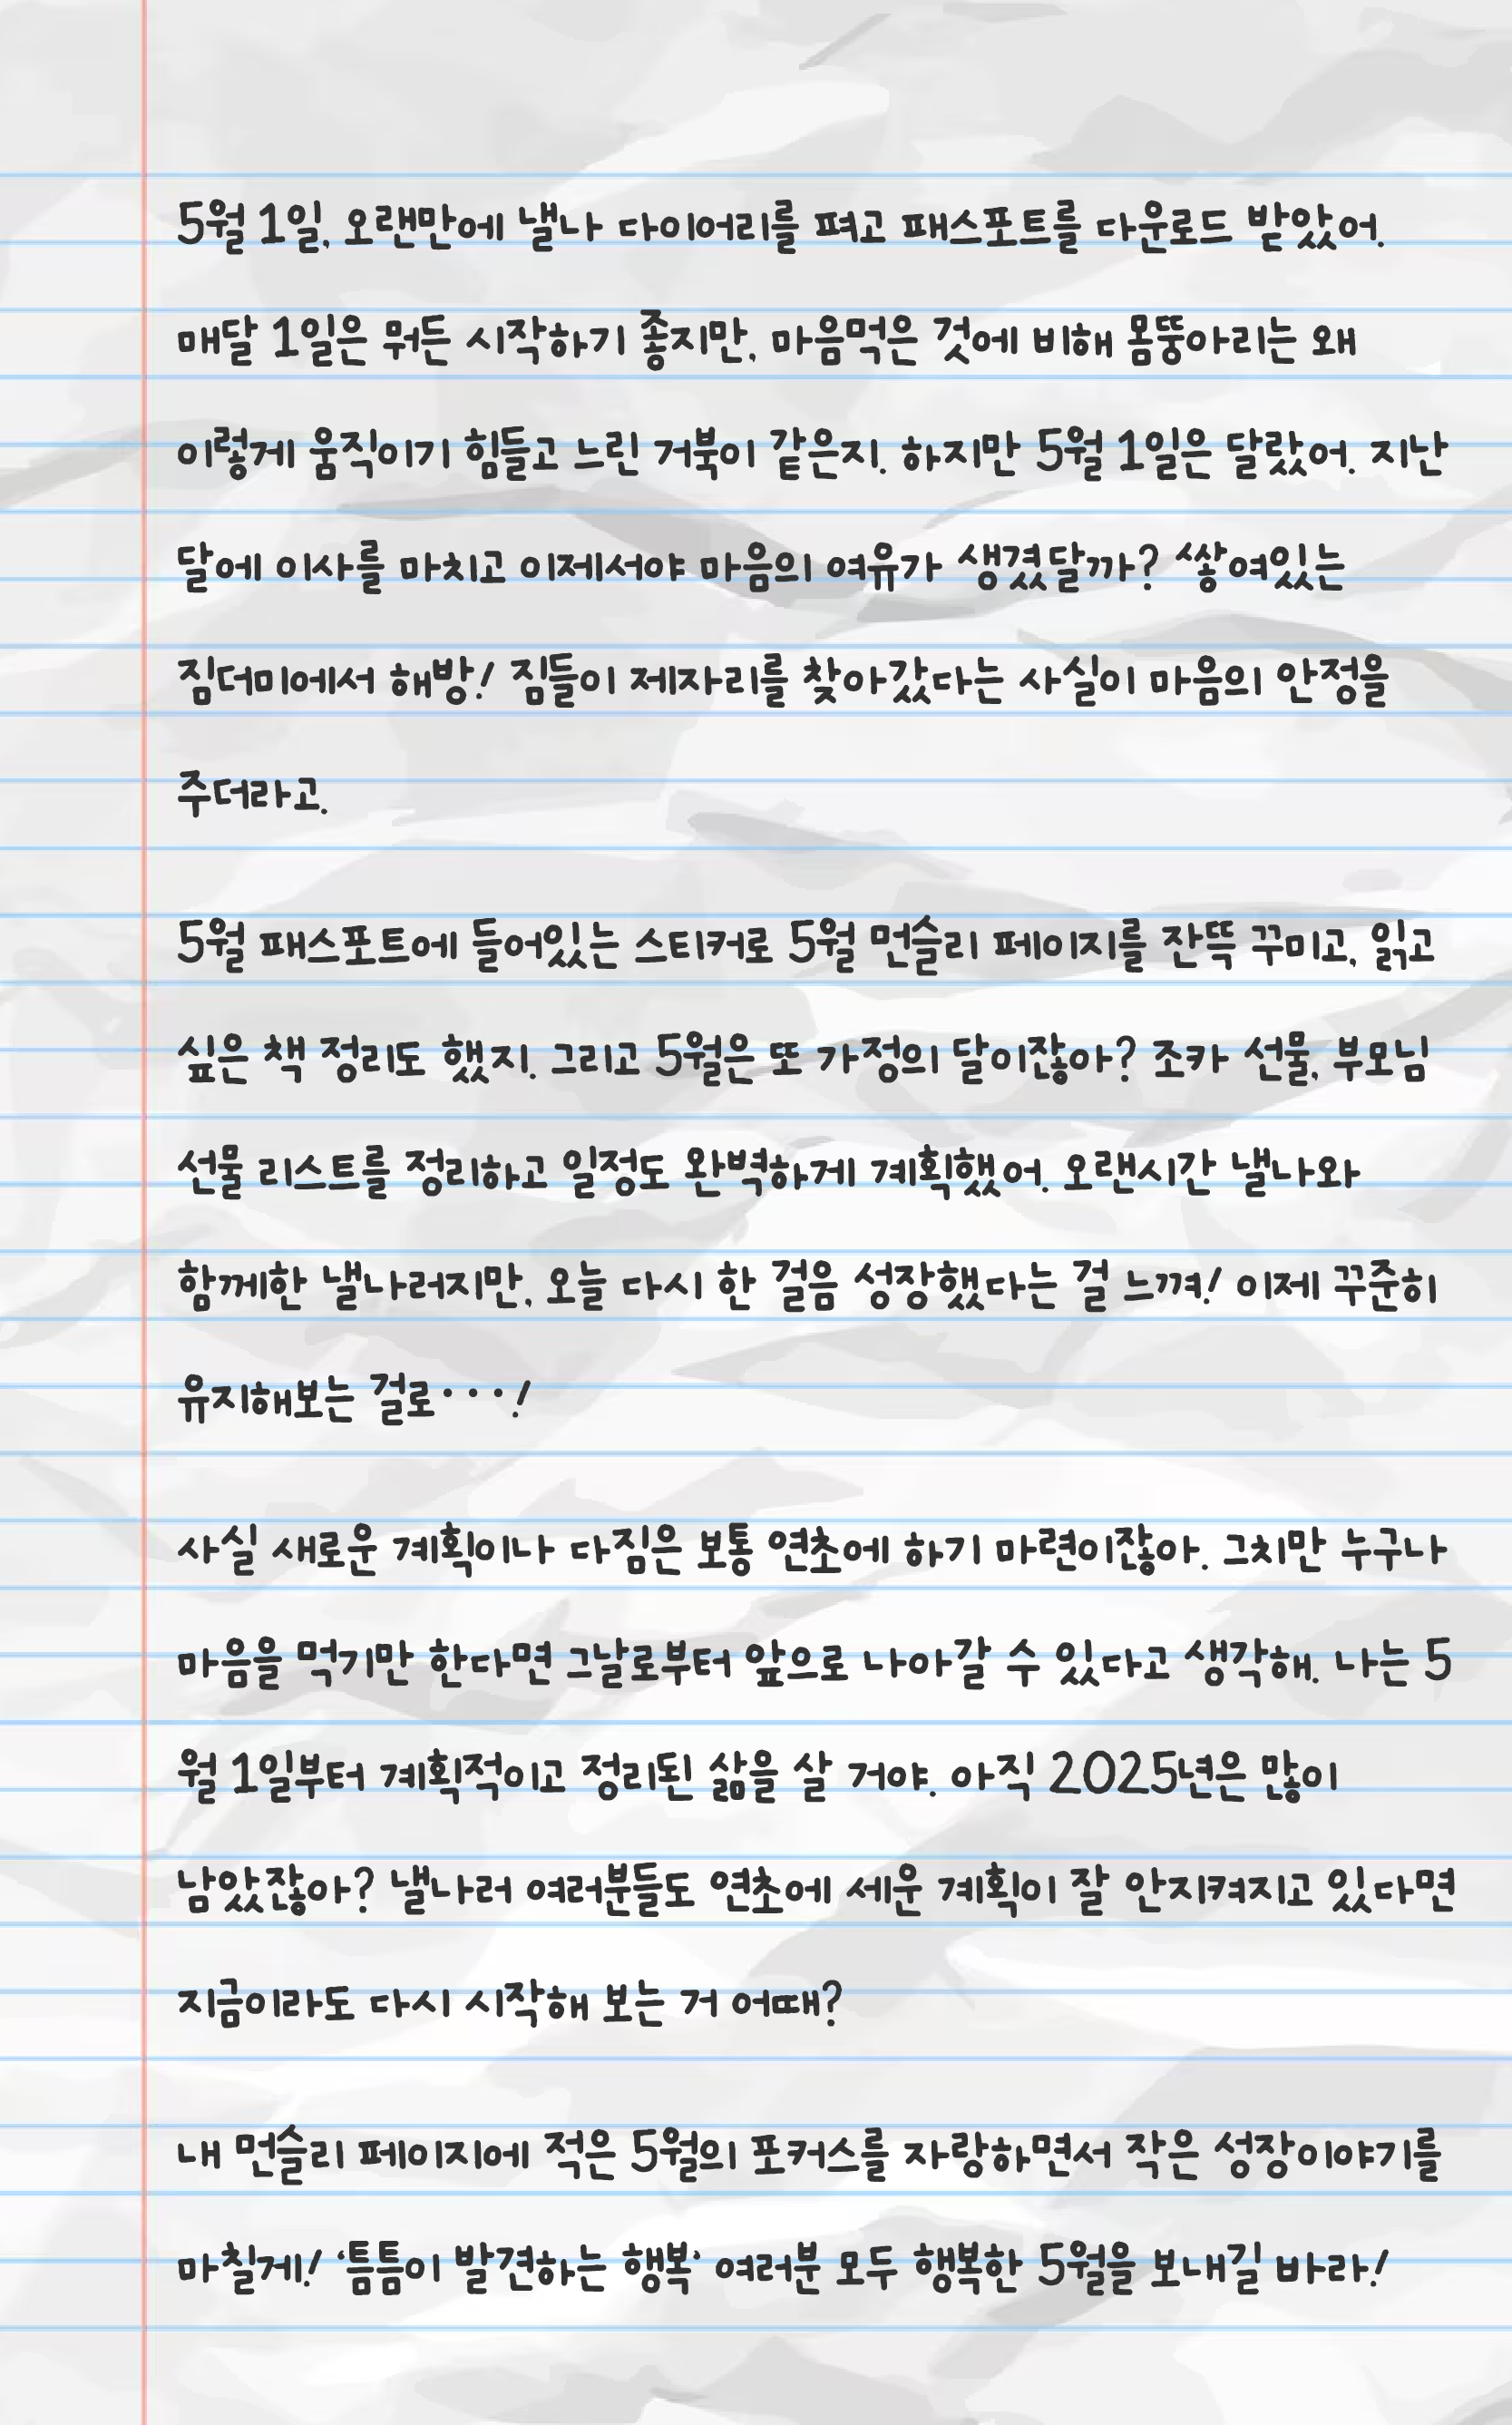 5월 1일, 오랜만에 낼나 다이어리를 펴고 패스포트를 다운로드 받았어.
매달 1일은 뭐든 시작하기 좋지만, 마음먹은 것에 비해 몸뚱아리는 왜
이렇게 움직이기 힘들고 느린 거북이 같은지. 하지만 5월 1일은 달랐어. 지난
달에 이사를 마치고 이제서야 마음의 여유가 생겼달까? 쌓여있는
짐더미에서 해방! 짐들이 제자리를 찾아갔다는 사실이 마음의 안정을
주더라고.
5월 패스포트에 들어있는 스티커로 5월 먼슬리 페이지를 잔뜩 꾸미고, 읽고
싶은 책 정리도 했지. 그리고 5월은 또 가정의 달이잖아? 조카 선물, 부모님
선물 리스트를 정리하고 일정도 완벽하게 계획했어. 오랜시간 낼나와
함께한 낼나러지만, 오늘 다시 한 걸음 성장했다는 걸 느껴! 이제 꾸준히
유지해보는 걸로···!
사실 새로운 계획이나 다짐은 보통 연초에 하기 마련이잖아. 그치만 누구나
마음을 먹기만 한다면 그날로부터 앞으로 나아갈 수 있다고 생각해. 나는 5
월 1일부터 계획적이고 정리된 삶을 살 거야. 아직 2025년은 많이
남았잖아? 낼나러 여러분들도 연초에 세운 계획이 잘 안지켜지고 있다면
지금이라도 다시 시작해 보는 거 어때?
내 먼슬리 페이지에 적은 5월의 포커스를 자랑하면서 작은 성장이야기를
마칠게! ‘틈틈이 발견하는 행복’ 여러분 모두 행복한 5월을 보내길 바라!